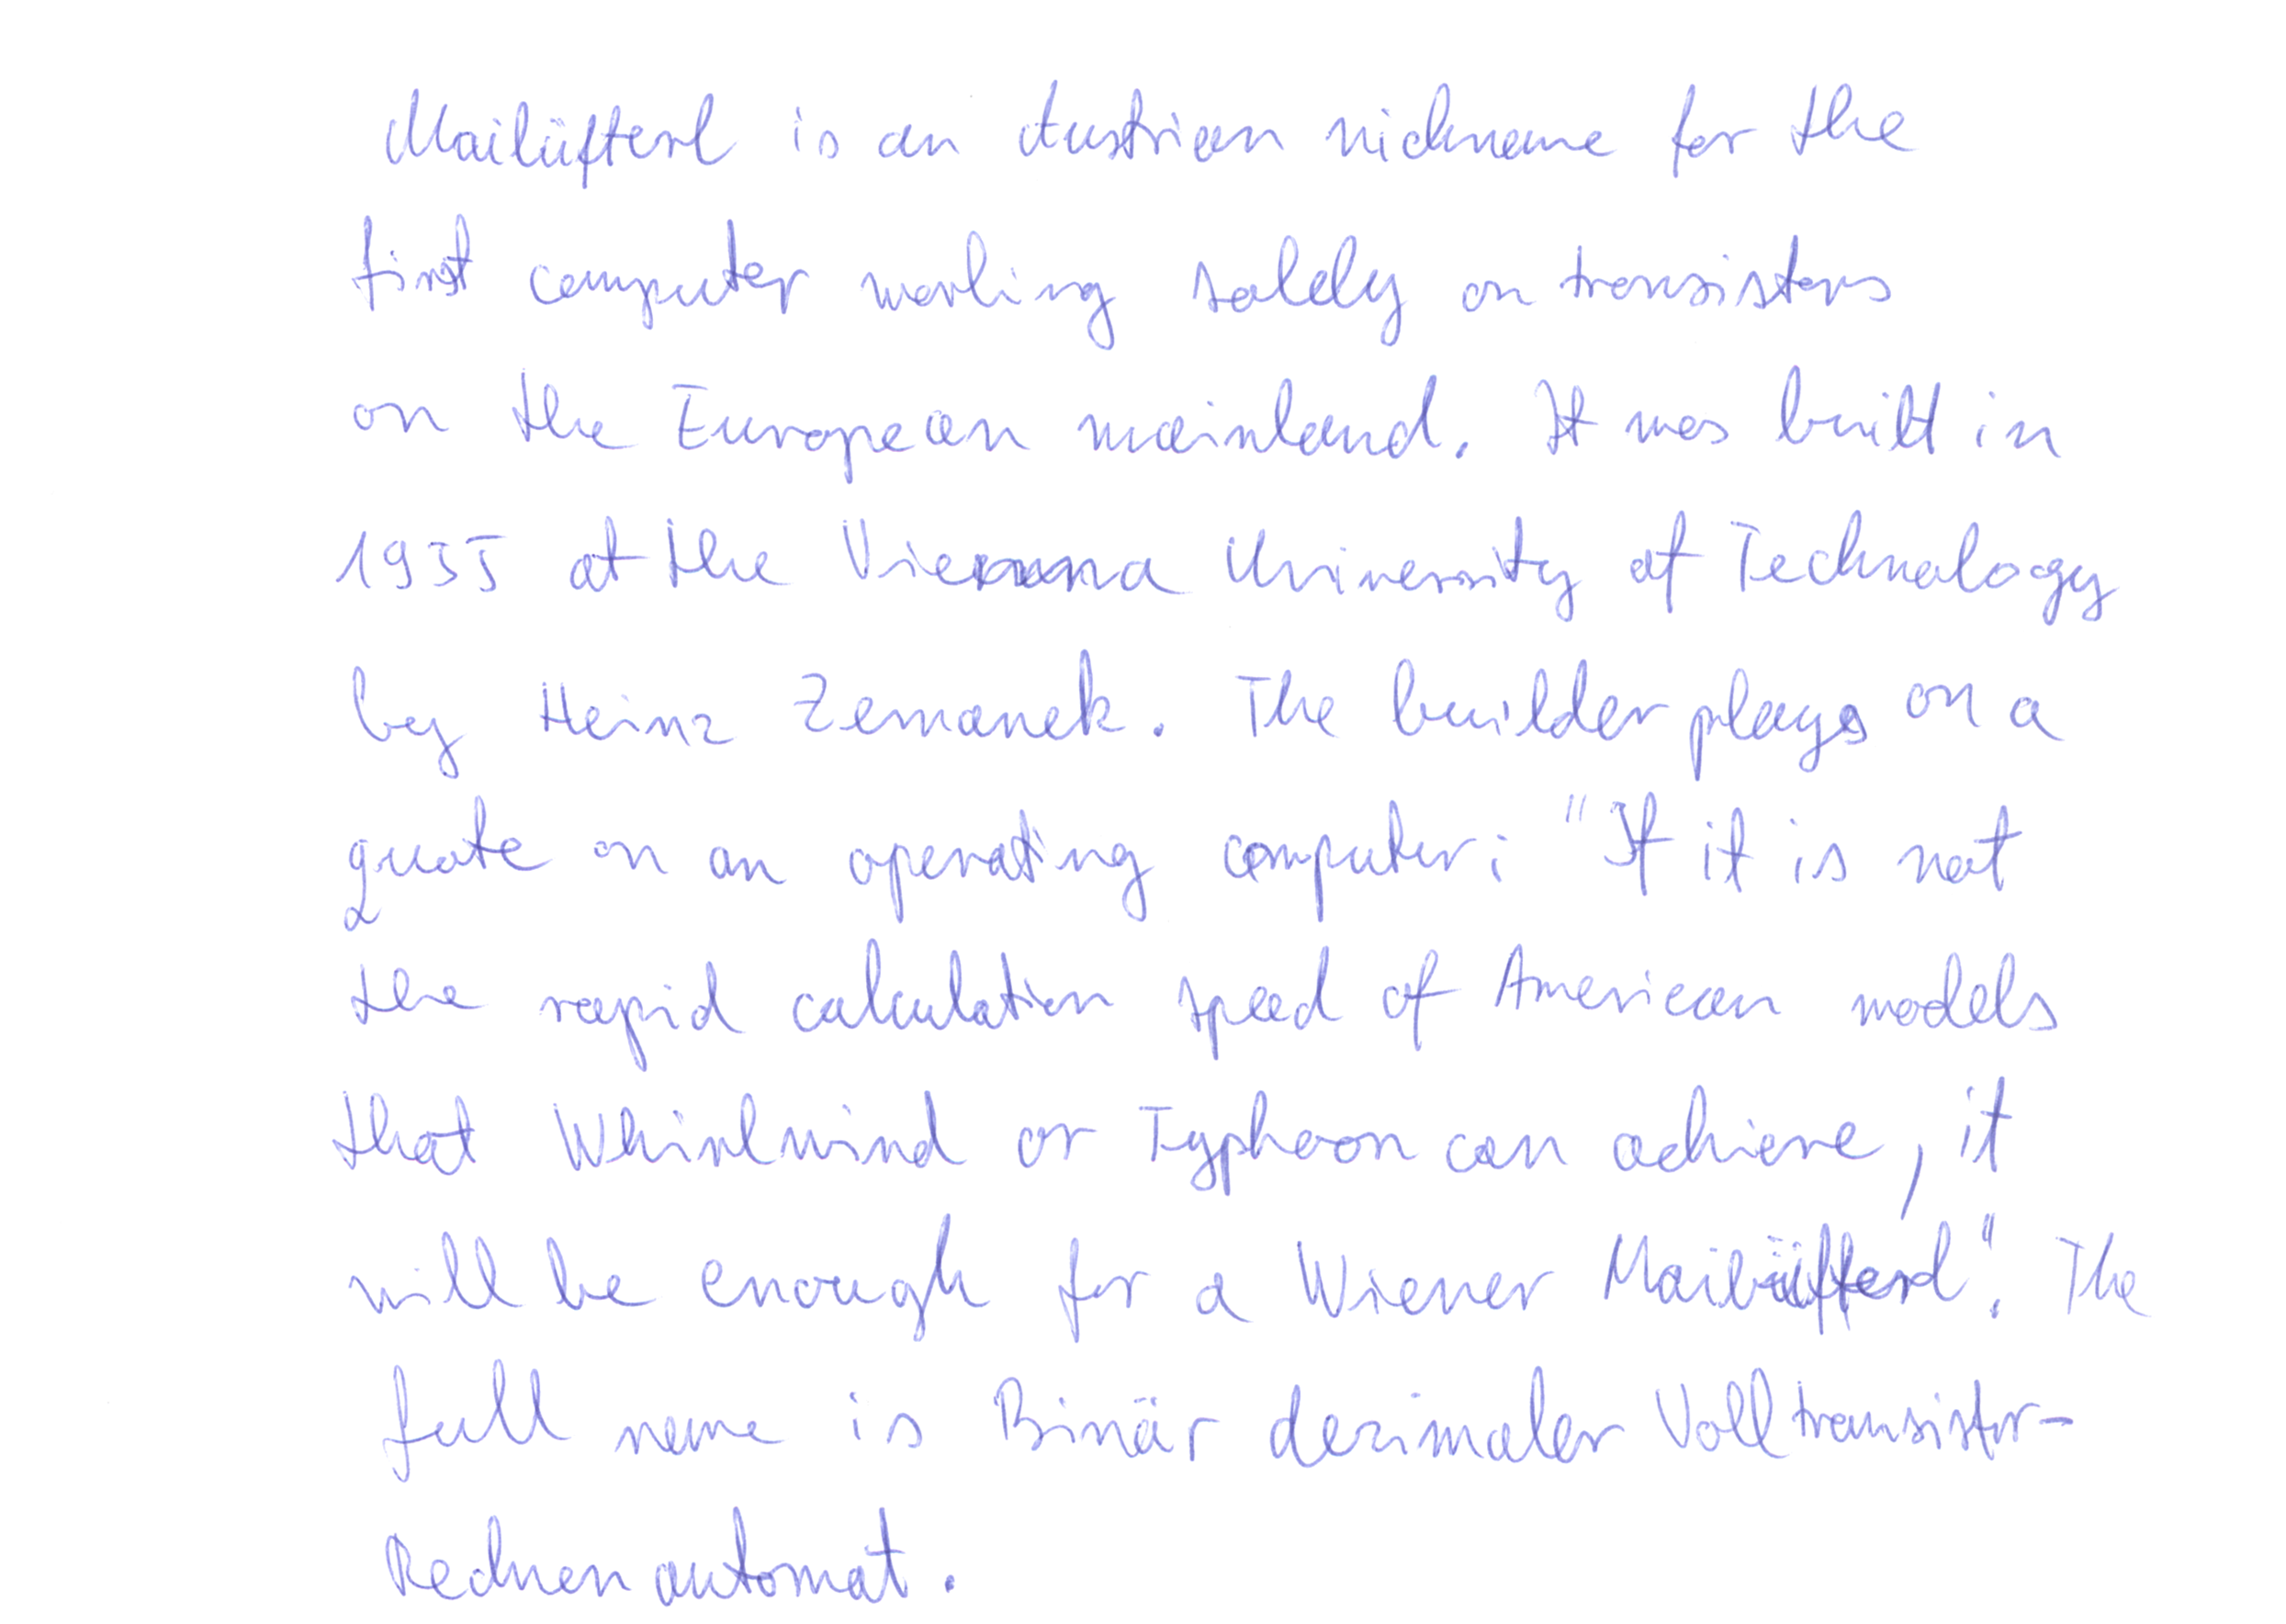 Mailüfterl is an Austrian nickname for the
first computer working solely on transistors
on the European mainland. It was built in
1955 at the Vienna University of Technology
by Heinz Zemanek. The builder plays on a
quote on an operating computer: "If it is not
the rapid calculation speed of American models
that Whirlwind or Typhoon can achieve, it
will be enough for a Wiener Mailüfterl". The
full name is Binär dezimaler Volltransistor-
Rechenautomat.